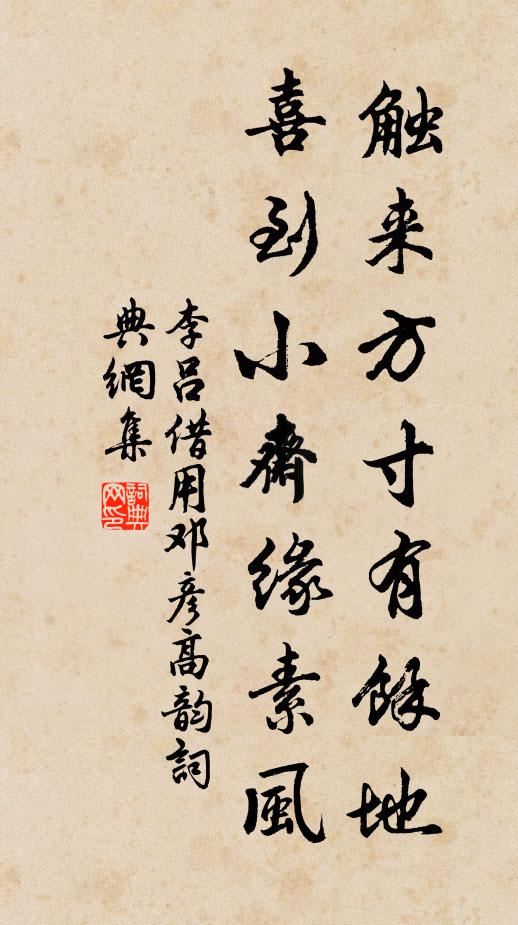 触来方寸有餘地
喜到小齋緣素風
李吕借用邓彦高韵詞
典網集
詞典网印